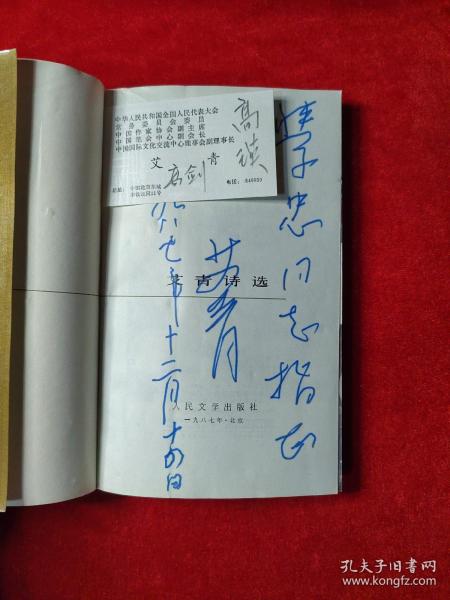 中华人民共和国全国人民代表大会
常务委员会委员
中国作家协会副主席
中国笔会中心副会长
中国国际文化交流中心理事会副理事长
艾 青
高瑛
忠同志指正
艾青
艾青诗选
七年十二月十五日
人民文学出版社
一九八七年·北京
孔夫子旧书网
https://www.kongfz.com